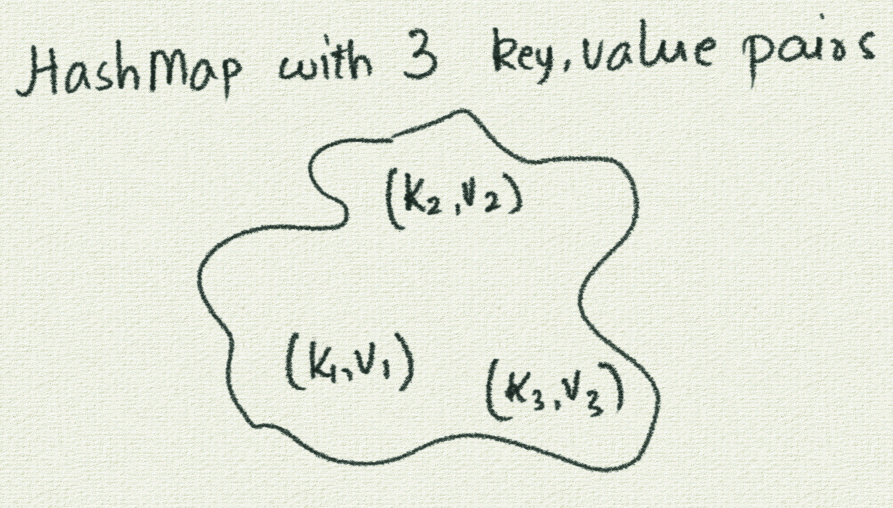 HashMap with 3 key,value pairs
(K2,V2)
(K1,V1) (K3,V3)